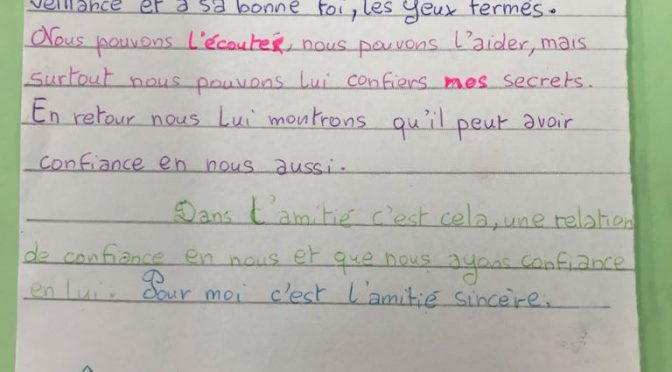 veillance et à sa bonne foi, les yeux fermés.
Nous pouvons l'écouter, nous pouvons l'aider, mais
surtout nous pouvons lui confiers mes secrets.
En retour nous lui montrons qu'il peut avoir
confiance en nous aussi.
Dans l'amitié c'est cela, une relation
de confiance en nous et que nous ayons confiance
en lui. Pour moi c'est l'amitié sincère.